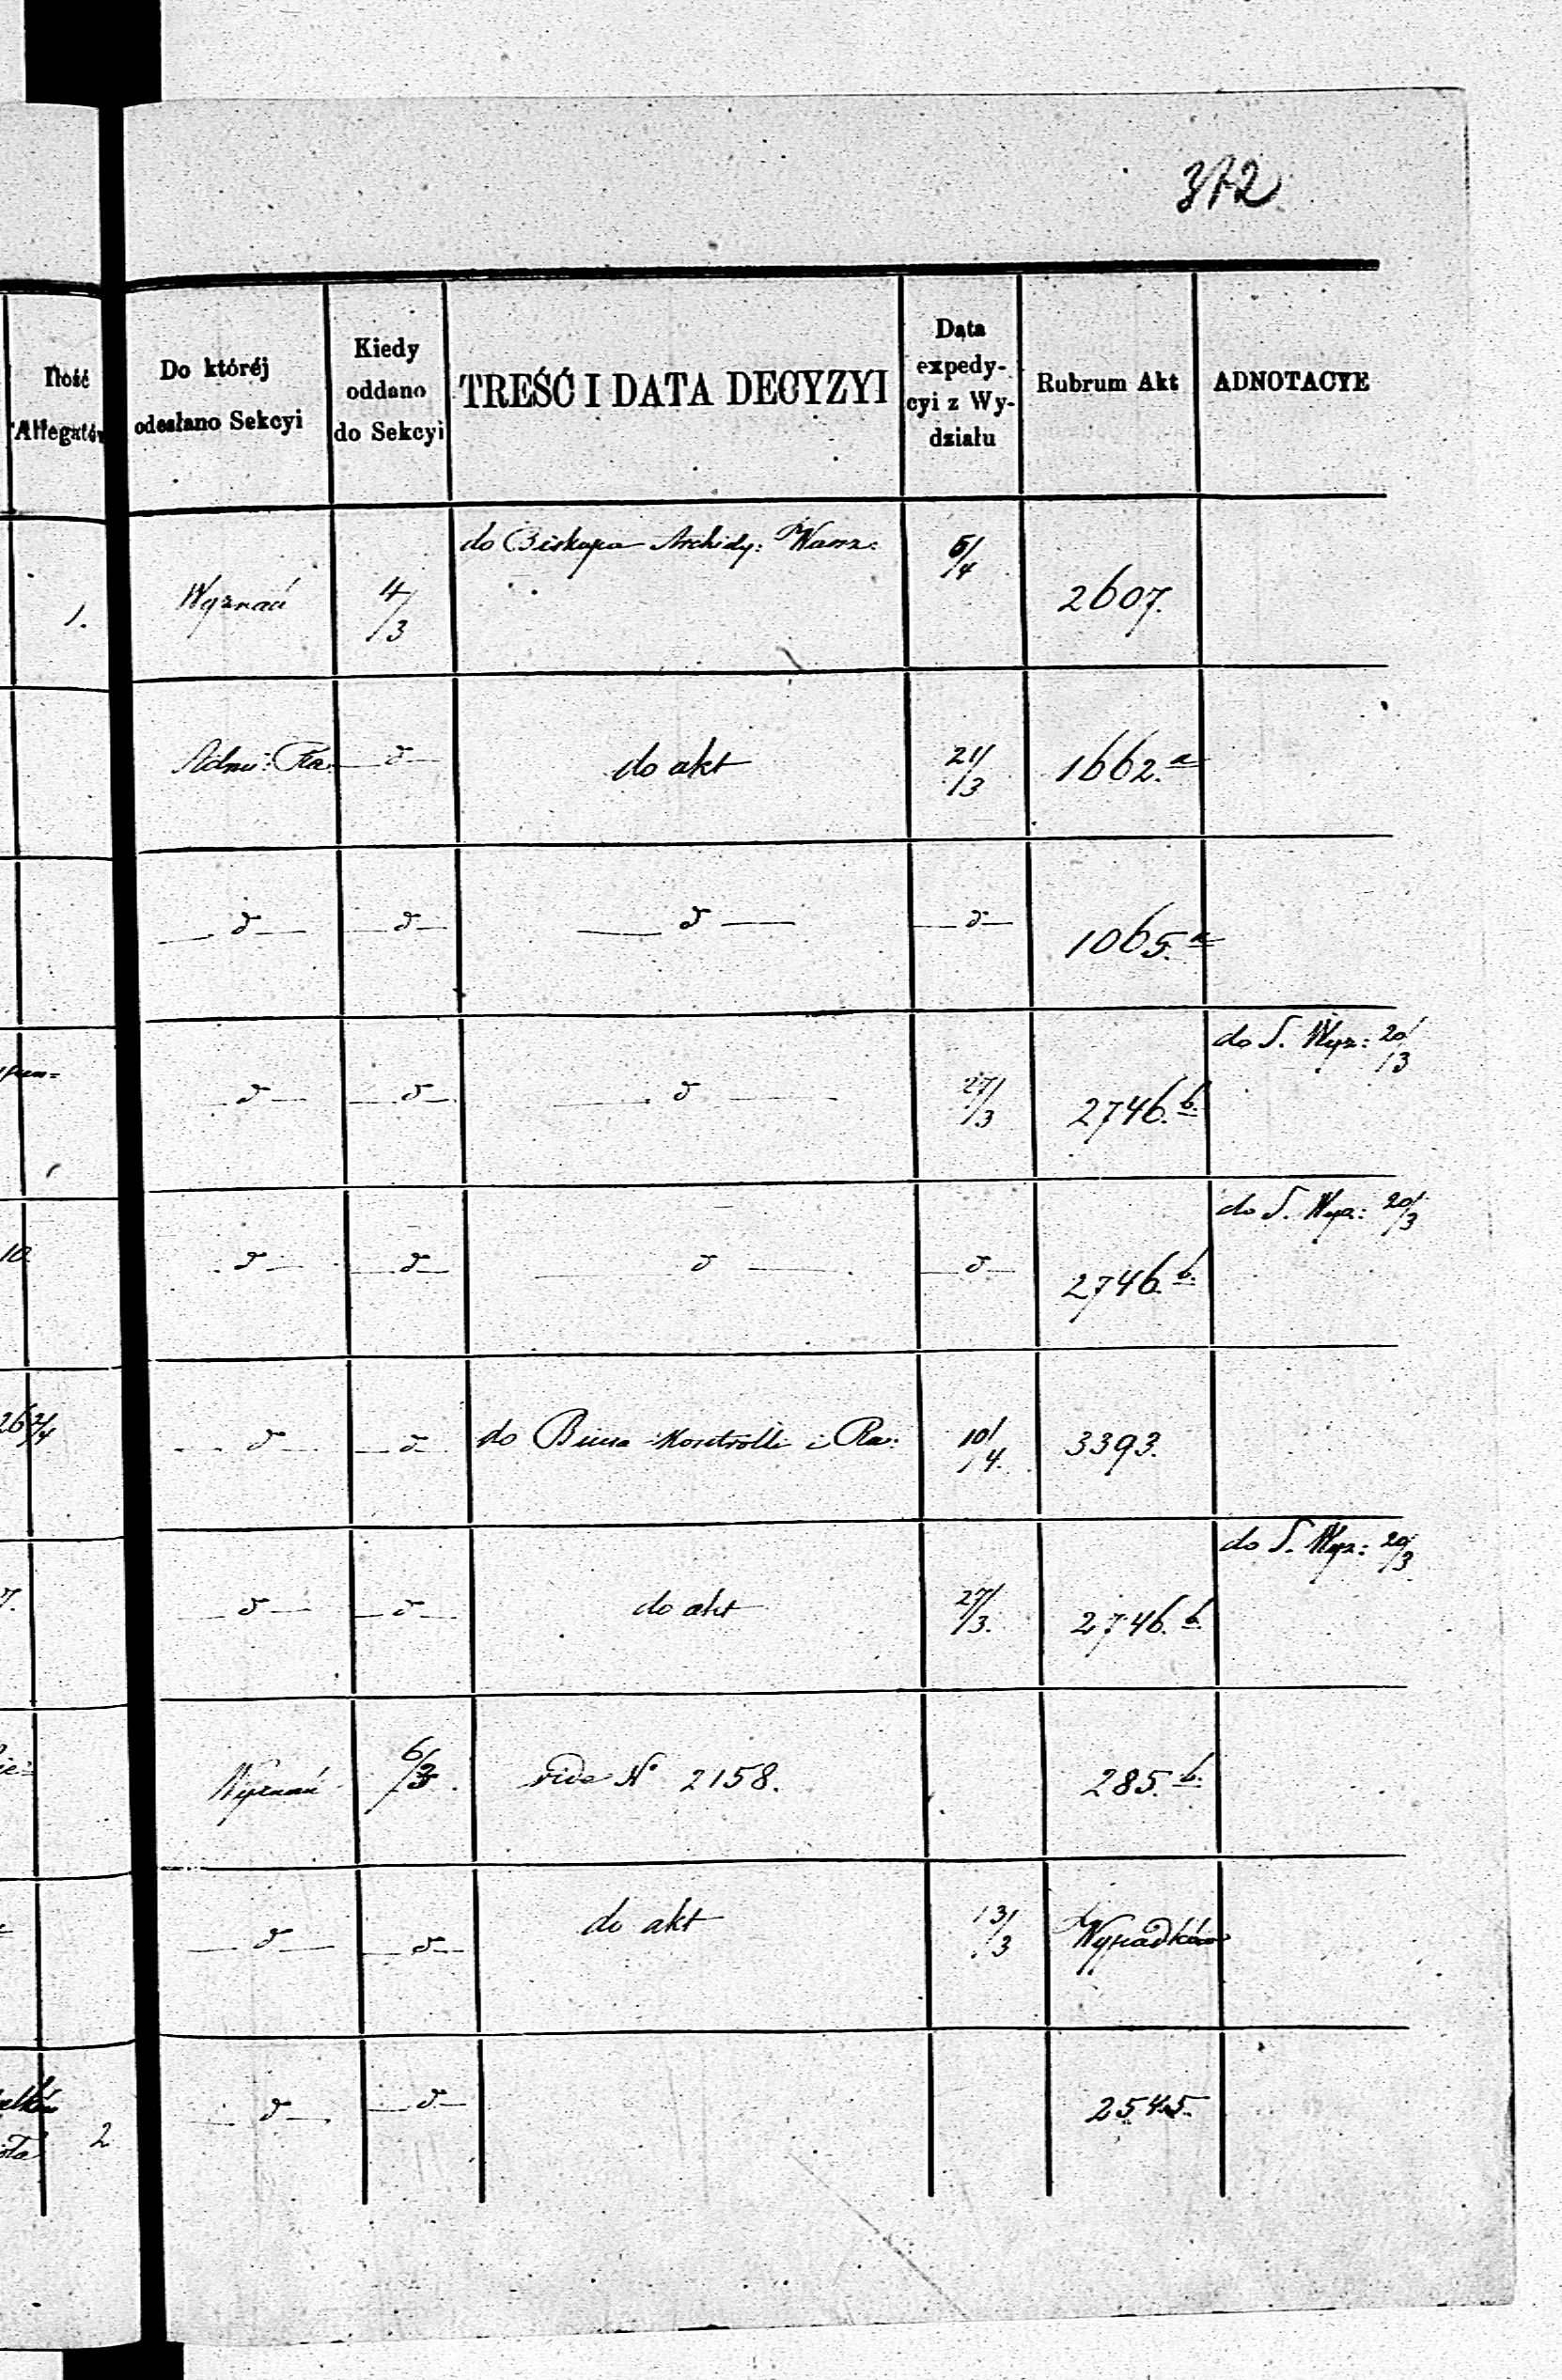 372
Ilość
Allegatów
Do któréj
odesłano Sekcyi
Kiedy
oddano
do Sekcyi
TREŚĆ I DATA DECYZYI
Data
expedy-
cyi z Wy-
działu
Rubrum Akt
ADNOTACYE
1. Wyznań 4/3 do Biskupa Archidy: Warsz: 5/4 2607.
Adm: Ra d do akt 21/3 1662.a
d d d d 1065.a
d d d 27/3 2746.b. do S. Wyz: 20/3
10. d d d d 2746.b. do S. Wyz: 20/3
d d do Biura Kontrolli i Ra: 10/4. 3393.
7. d d do akt 27/3. 2746.b. do S. Wyz: 20/3
Wyznań 6/3. vide No 2158. 285.b.
d d do akt 13/3 Wypadków
2 d d 2545.